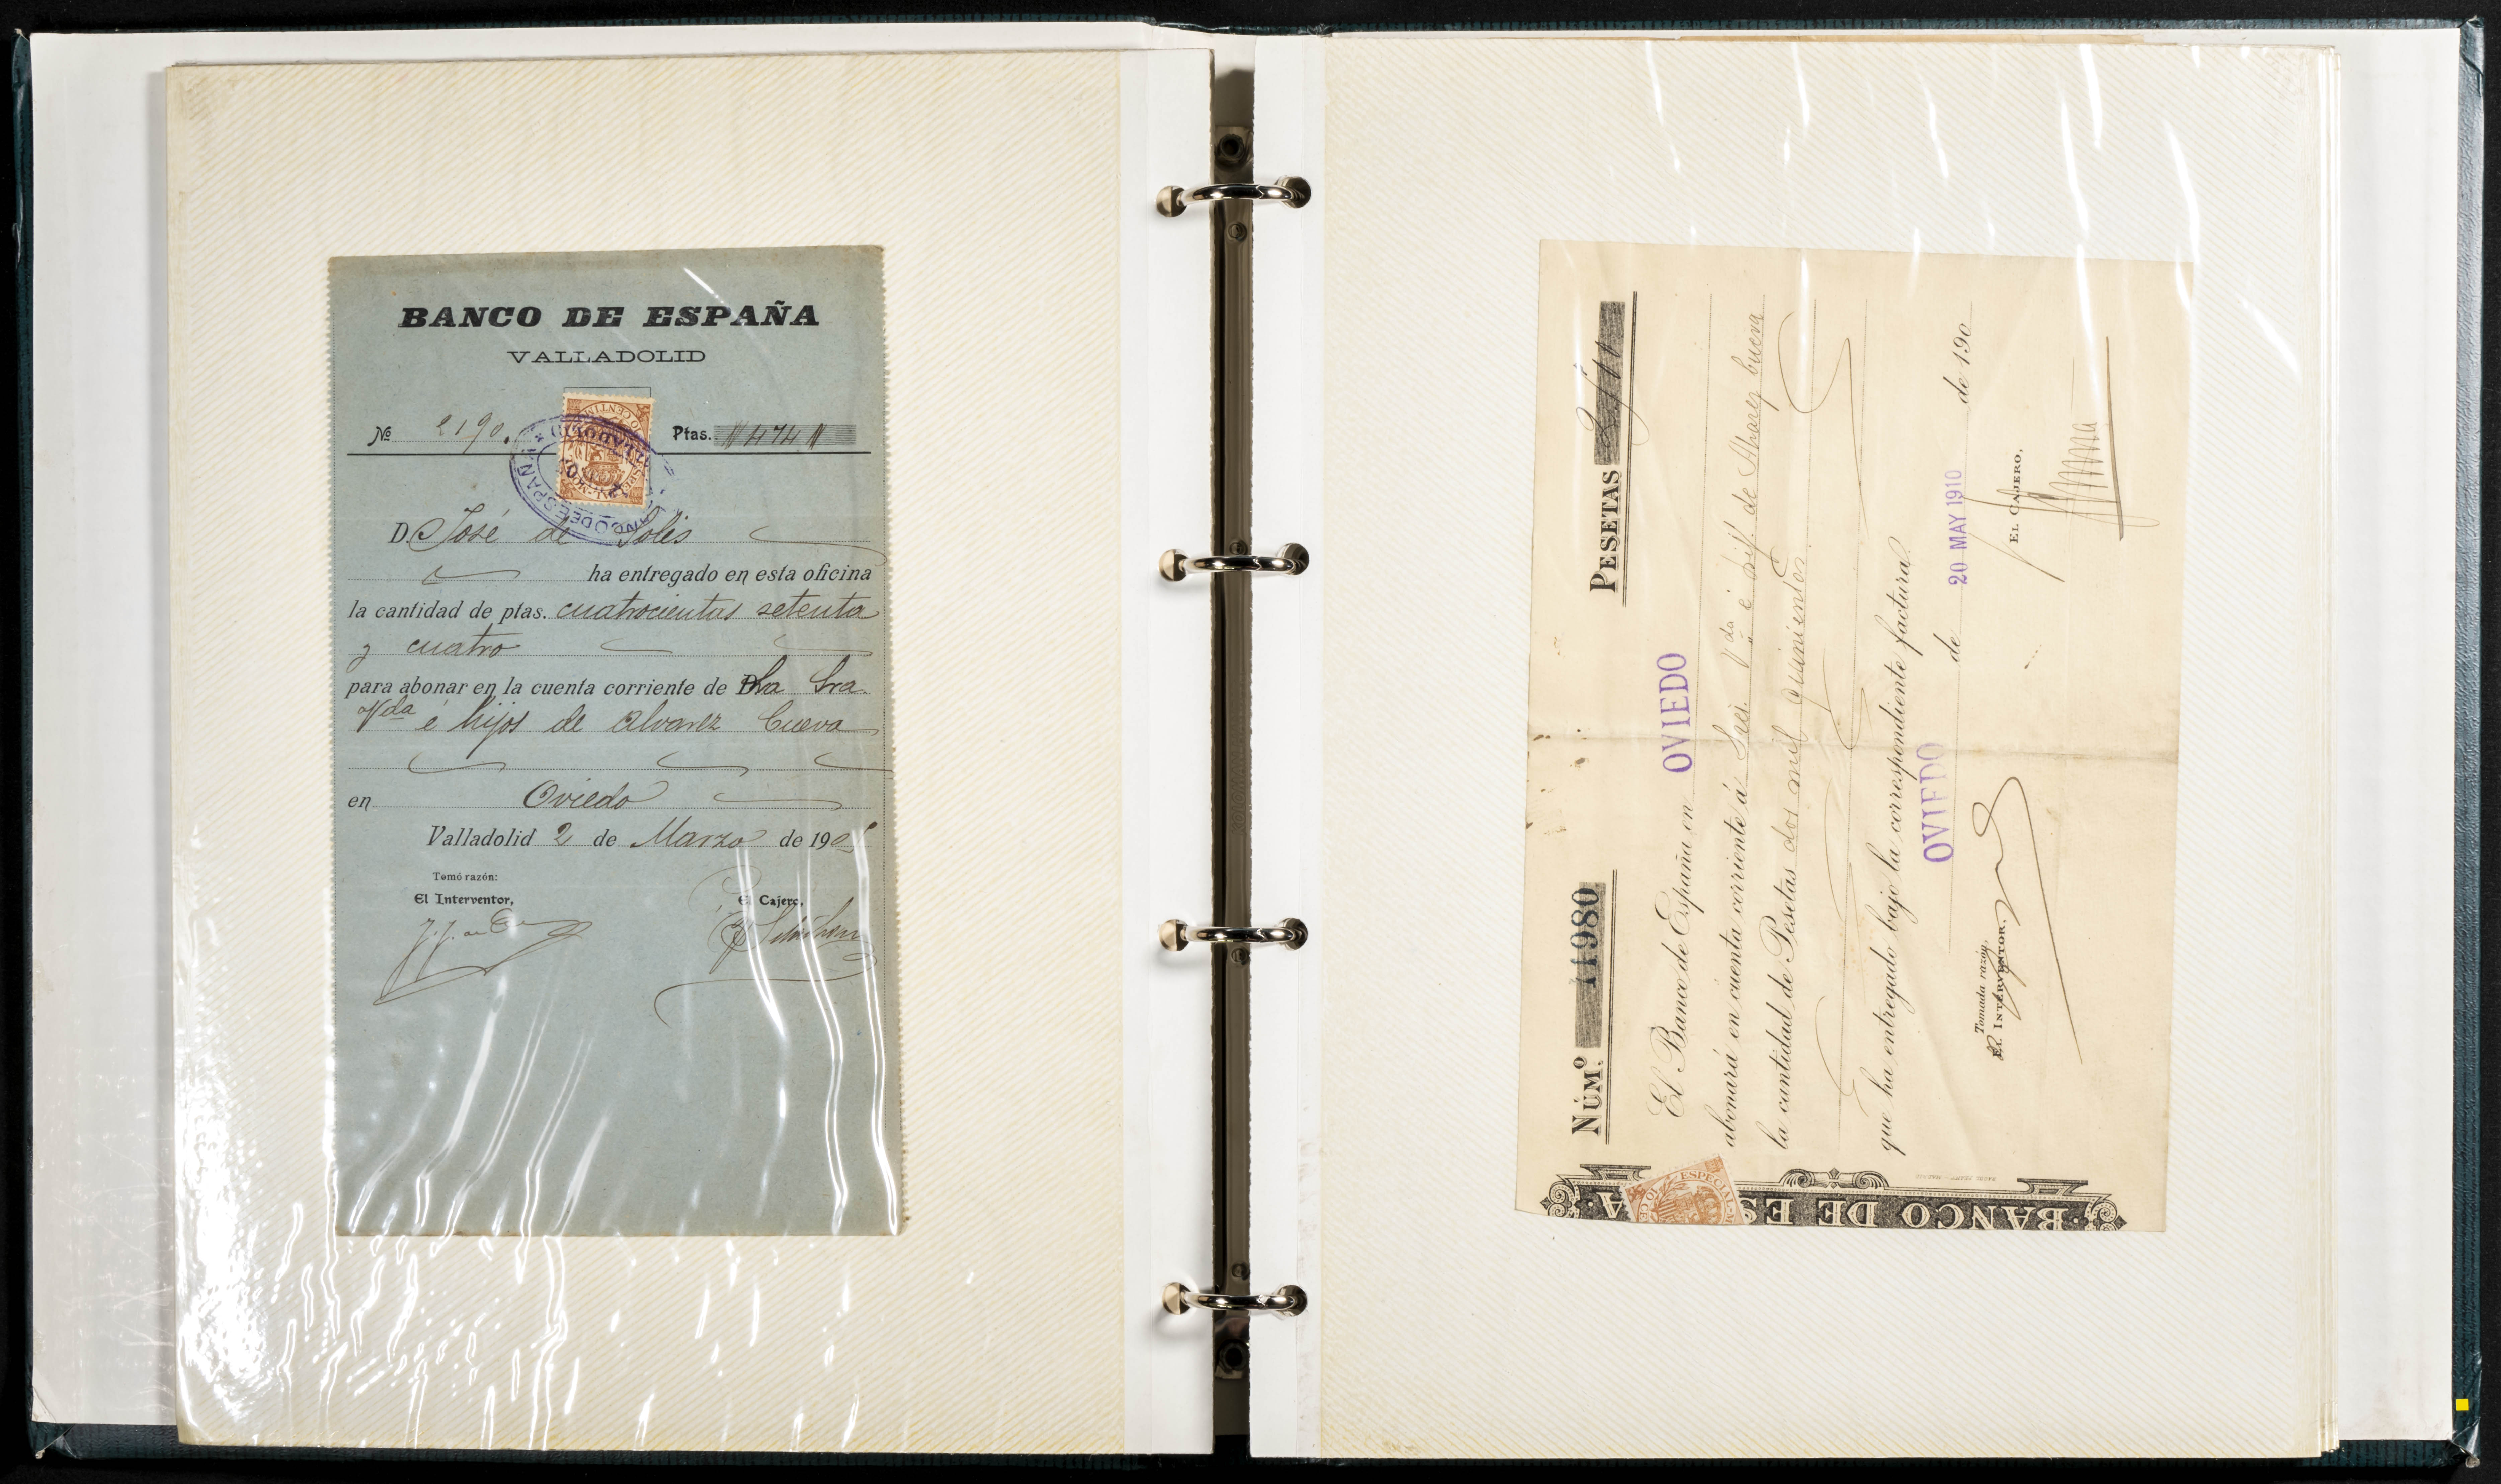 BANCO DE ESPAÑA
VALLADOLID
Nº 2190. Ptas. 474
D. José de Solis
ha entregado en esta oficina
la cantidad de ptas. cuatrocientas setenta
y cuatro
para abonar en la cuenta corriente de D la Sra.
Vda é hijos de Alvarez Cueva
en Oviedo
Valladolid 2 de Marzo de 190
Tomó razón:
El Interventor,
El Cajero,
BANCO DE ESPAÑA
VALLADOLID
NÚM.º 11980 PESETAS
El Banco de España en OVIEDO
abonará en cuenta corriente á Sres. Vda é hij. de Alvarez Cueva
la cantidad de Pesetas dos mil quinientos
que ha entregado bajo la correspondiente factura.
OVIEDO de 20 MAY 1910 de 190
Tomada razón,
EL INTERVENTOR.
EL CAJERO,
BANCO DE ES A
ESPECIAL